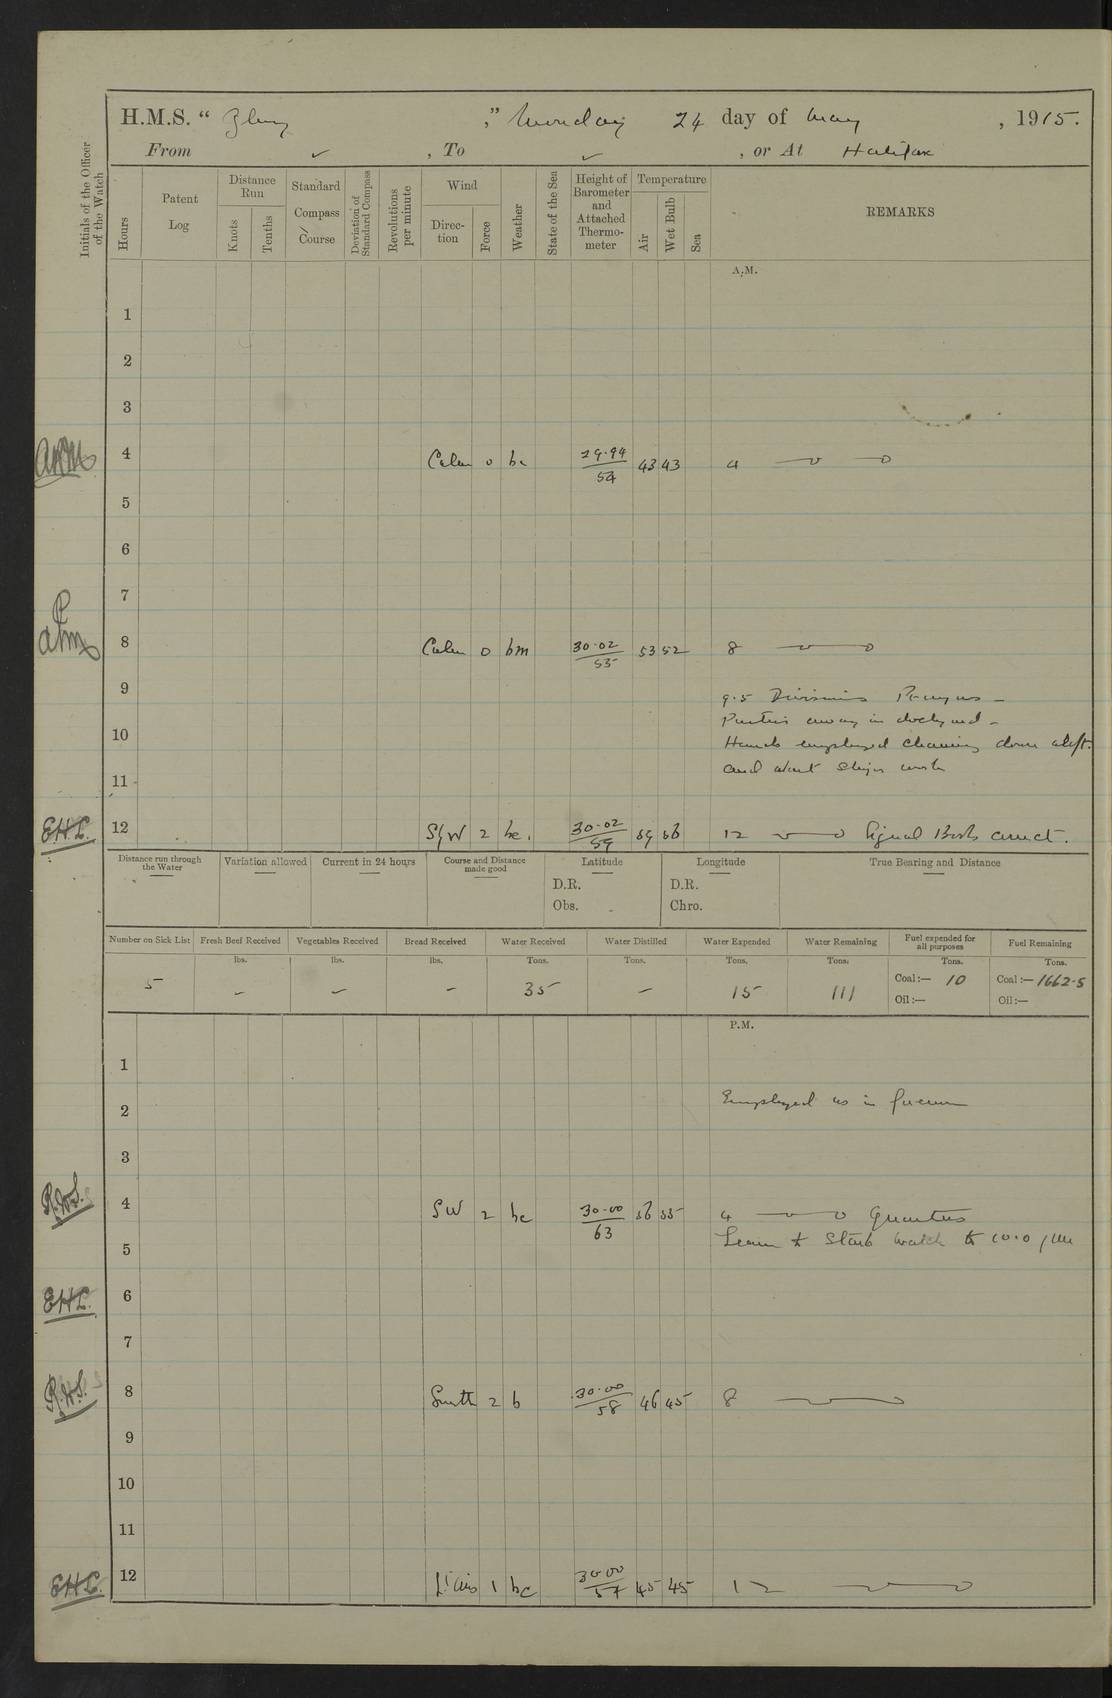 H.M.S. “ Glory ,” Monday 24 day of May , 1915.
From ✓ , To ✓ , or At Halifax
Initials of the Officer of the Watch
Hours
Patent Log
Distance Run
Knots
Tenths
Standard Compass Course
Deviation of Standard Compass
Revolutions per minute
Wind
Direction
Force
Weather
State of the Sea
Height of Barometer and Attached Thermometer
Temperature
Air
Wet Bulb
Sea
REMARKS
A.M.
1
2
3
4 Calm 0 bc 29.94 / 54 43 43 4
5
6
7
8 Calm 0 bm 30.02 / 55 53 52 8
9 9.5 Divisions Prayers –
Parties away in dockyard –
10 Hands employed cleaning down aloft.
11 and about ships work
EHL. 12 SW 2 bc. 30.02 / 59 59 56 12 Signal Books correct.
Distance run through the Water
Variation allowed
Current in 24 hours
Course and Distance made good
Latitude
D.R.
Obs.
Longitude
D.R.
Chro.
True Bearing and Distance
Number on Sick List
Fresh Beef Received
Vegetables Received
Bread Received
Water Received
Water Distilled
Water Expended
Water Remaining
Fuel expended for all purposes
Fuel Remaining
lbs. lbs. lbs. Tons. Tons. Tons. Tons. Tons. Tons.
5 – – – 35 – 15 111 Coal :— 10 Coal :— 1662.5
Oil :— Oil :—
P.M.
1
2 Employed as in forenoon
3
R.W.S. 4 SW 2 bc 30.00 / 63 56 55 4 Quarters
Leave to Starb watch to 10.0 pm
5
EHL. 6
7
R.W.S. 8 South 2 b 30.00 / 58 46 45 8
9
10
11
EHL. 12 Lt airs 1 bc 30.00 / 57 45 45 12